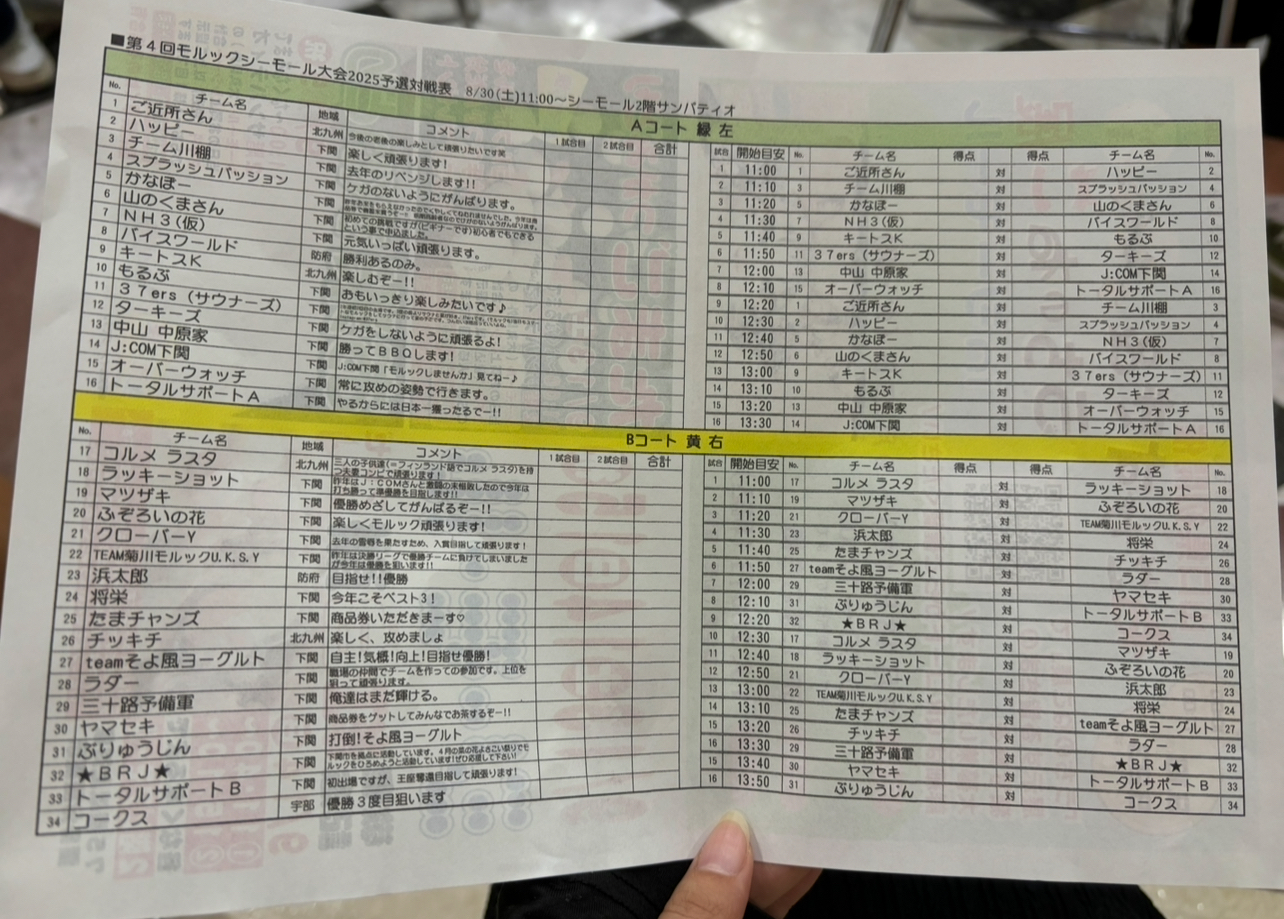 ■第4回モルックシーモール大会2025予選対戦表 8/30(土)11:00～シーモール2階サンパティオ
Aコート 緑 左
No. チーム名 地域 コメント 1試合目 2試合目 合計
1 ご近所さん 北九州 今後の老後の楽しみとして頑張りたいです笑
2 ハッピー 下関 楽しく頑張ります!
3 チーム川棚 下関 去年のリベンジします!!
4 スプラッシュパッション 下関 ケガのないようにがんばります。
5 かなぼー 下関
6 山のくまさん 下関 初めての挑戦ですが(ビギナーです)初心者でもできるという事で申込ました。
7 NH3(仮) 下関 元気いっぱい頑張ります。
8 バイスワールド 防府 勝利あるのみ。
9 キートスK 北九州 楽しむぞー!!
10 もるぶ 下関 おもいっきり楽しみたいです♪
11 37ers(サウナーズ) 下関
12 ターキーズ 下関 ケガをしないように頑張るよ!
13 中山 中原家 下関 勝ってBBQします!
14 J:COM下関 下関 J:COM下関「モルックしませんか」見てねー♪
15 オーバーウォッチ 下関 常に攻めの姿勢で行きます。
16 トータルサポートA 下関 やるからには日本一獲ったるでー!!
試合 開始目安 No. チーム名 得点 得点 チーム名 No.
1 11:00 1 ご近所さん 対 ハッピー 2
2 11:10 3 チーム川棚 対 スプラッシュパッション 4
3 11:20 5 かなぼー 対 山のくまさん 6
4 11:30 7 NH3(仮) 対 バイスワールド 8
5 11:40 9 キートスK 対 もるぶ 10
6 11:50 11 37ers(サウナーズ) 対 ターキーズ 12
7 12:00 13 中山 中原家 対 J:COM下関 14
8 12:10 15 オーバーウォッチ 対 トータルサポートA 16
9 12:20 1 ご近所さん 対 チーム川棚 3
10 12:30 2 ハッピー 対 スプラッシュパッション 4
11 12:40 5 かなぼー 対 NH3(仮) 7
12 12:50 6 山のくまさん 対 バイスワールド 8
13 13:00 9 キートスK 対 37ers(サウナーズ) 11
14 13:10 10 もるぶ 対 ターキーズ 12
15 13:20 13 中山 中原家 対 オーバーウォッチ 15
16 13:30 14 J:COM下関 対 トータルサポートA 16
Bコート 黄 右
No. チーム名 地域 コメント 1試合目 2試合目 合計
17 コルメ ラスタ 北九州 三人の子供達(=フィンランド語でコルメ ラスタ)を持つ夫妻コンビで頑張ります!
18 ラッキーショット 下関 昨年はJ:COMさんと激闘の末惜敗したので今年は打ち勝って準優勝を目指します!!
19 マツザキ 下関 優勝めざしてがんばるぞー!!
20 ふぞろいの花 下関 楽しくモルック頑張ります!
21 クローバーY 下関 去年の雪辱を果たすため、入賞目指して頑張ります!
22 TEAM菊川モルックU.K.S.Y 下関 昨年は決勝リーグで優勝チームに負けてしまいましたが今年は優勝を狙います!!
23 浜太郎 防府 目指せ!!優勝
24 将栄 下関 今年こそベスト3!
25 たまチャンズ 下関 商品券いただきまーす♡
26 チッキチ 北九州 楽しく、攻めましょ
27 teamそよ風ヨーグルト 下関 自主!気概!向上!目指せ優勝!
28 ラダー 下関 職場の仲間でチームを作っての参加です。上位を狙って頑張ります。
29 三十路予備軍 下関 俺達はまだ輝ける。
30 ヤマセキ 下関 商品券をゲットしてみんなでお茶するぞー!!
31 ぶりゅうじん 下関 打倒!そよ風ヨーグルト
32 ★BRJ★ 下関 下関市を拠点に活動しています。4月の菜の花よさこい祭りでモルックをひろめようと活動しています!ぜひ応援して下さい!
33 トータルサポートB 下関 初出場ですが、王座奪還目指して頑張ります!
34 コークス 宇部 優勝3度目狙います
試合 開始目安 No. チーム名 得点 得点 チーム名 No.
1 11:00 17 コルメ ラスタ 対 ラッキーショット 18
2 11:10 19 マツザキ 対 ふぞろいの花 20
3 11:20 21 クローバーY 対 TEAM菊川モルックU.K.S.Y 22
4 11:30 23 浜太郎 対 将栄 24
5 11:40 25 たまチャンズ 対 チッキチ 26
6 11:50 27 teamそよ風ヨーグルト 対 ラダー 28
7 12:00 29 三十路予備軍 対 ヤマセキ 30
8 12:10 31 ぶりゅうじん 対 トータルサポートB 33
9 12:20 32 ★BRJ★ 対 コークス 34
10 12:30 17 コルメ ラスタ 対 マツザキ 19
11 12:40 18 ラッキーショット 対 ふぞろいの花 20
12 12:50 21 クローバーY 対 浜太郎 23
13 13:00 22 TEAM菊川モルックU.K.S.Y 対 将栄 24
14 13:10 25 たまチャンズ 対 teamそよ風ヨーグルト 27
15 13:20 26 チッキチ 対 ラダー 28
16 13:30 29 三十路予備軍 対 ★BRJ★ 32
15 13:40 30 ヤマセキ 対 トータルサポートB 33
16 13:50 31 ぶりゅうじん 対 コークス 34